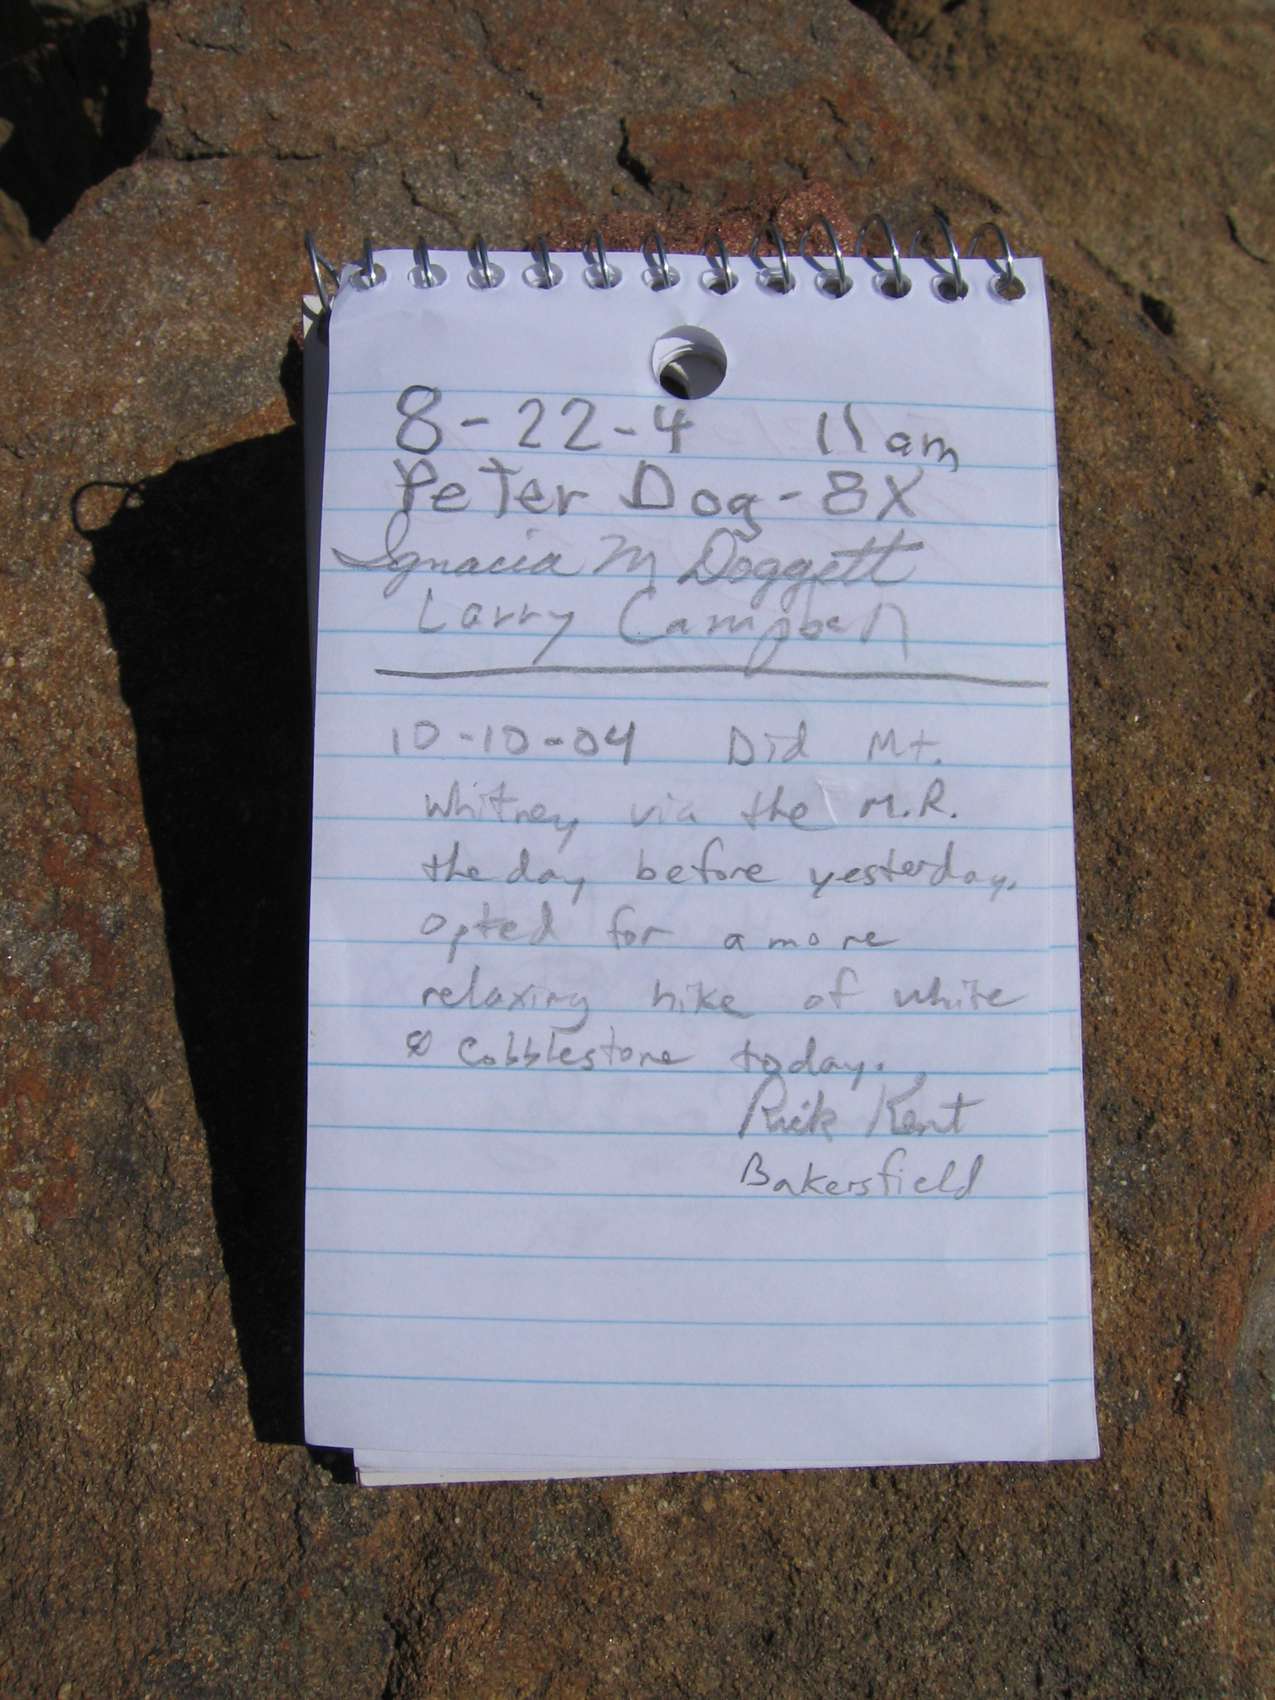 8-22-4 11am
Peter Dog - 8X
Ignacia M Doggett
Larry Campbell
10-10-04 Did Mt.
Whitney via the M.R.
the day before yesterday.
opted for a more
relaxing hike of white
& Cobblestone today.
Rick Kent
Bakersfield